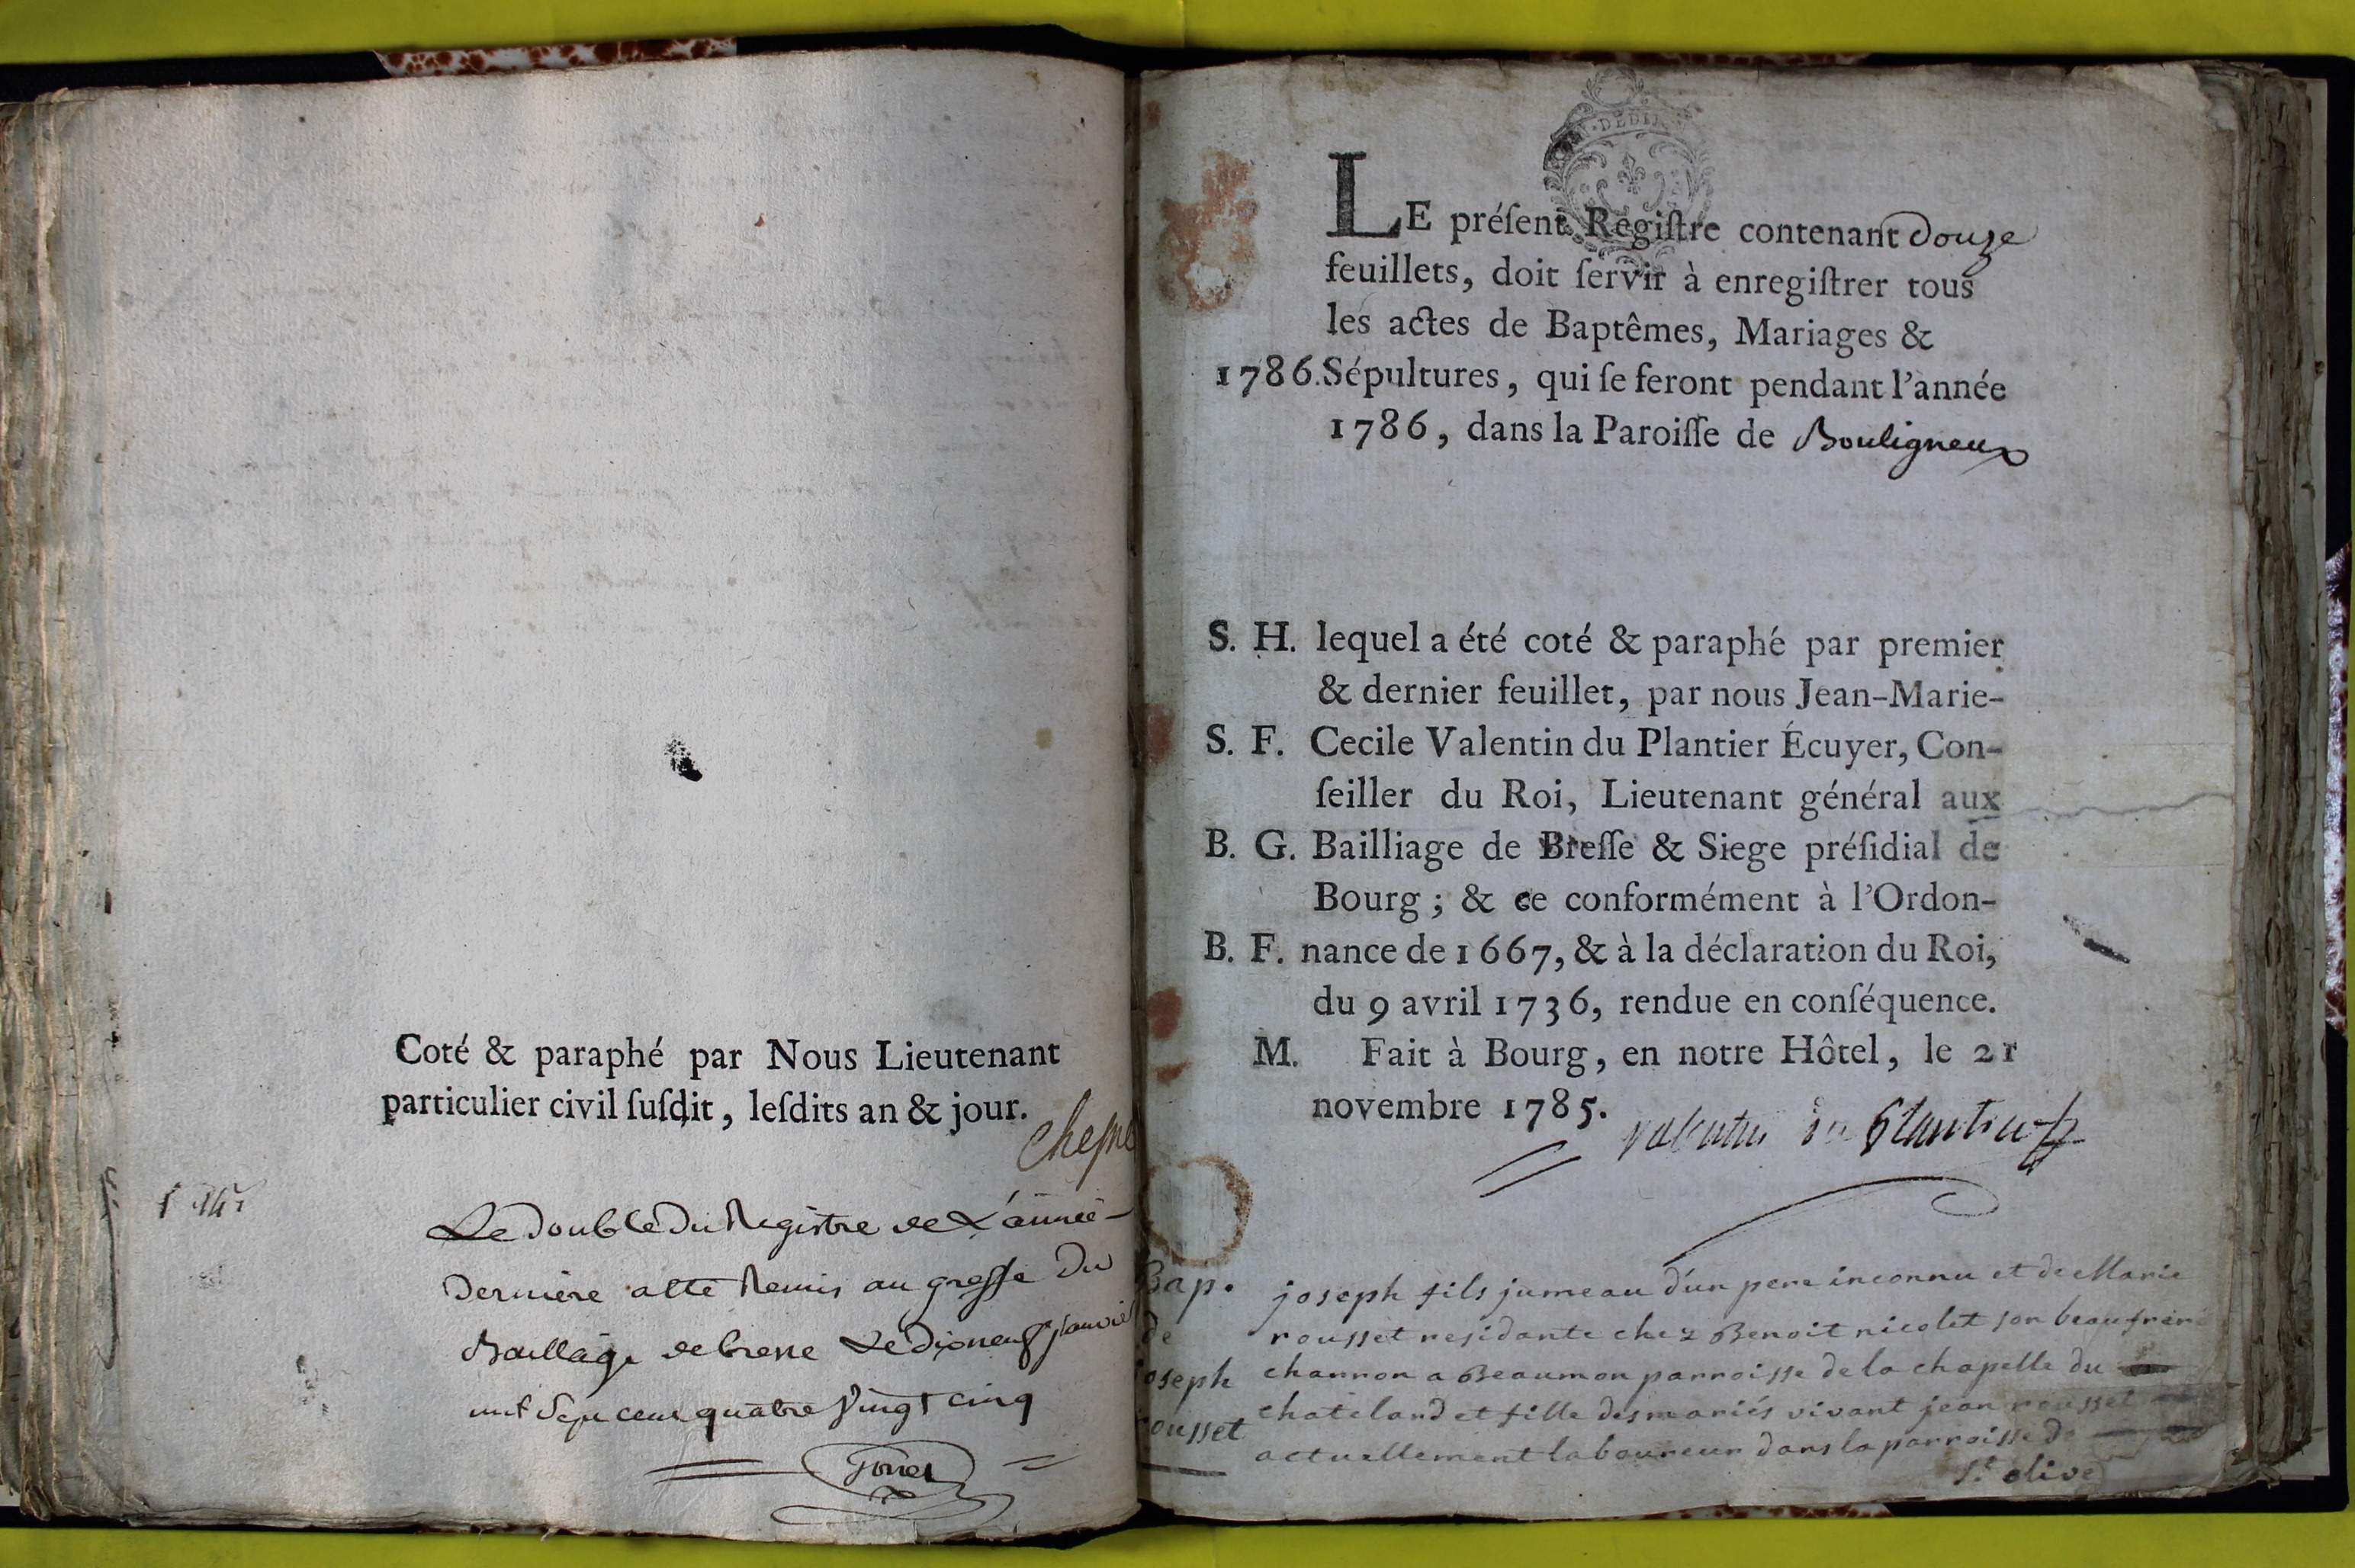 Coté & paraphé par Nous Lieutenant
particulier civil ſuſdit, leſdits an & jour.
Le double du Registre de L'année
derniere a été Remis au greffe Du
Baillage de bresse Le dixneuf janvier
mil sept cent quatre vingt cinq
LE préſent Regiſtre contenant douze
feuillets, doit ſervir à enregiſtrer tous
les actes de Baptêmes, Mariages &
1786. Sépultures, qui ſe feront pendant l'année
1786, dans la Paroiſſe de Bouligneux
S. H. lequel a été coté & paraphé par premier
& dernier feuillet, par nous Jean-Marie-
S. F. Cecile Valentin du Plantier Écuyer, Con-
ſeiller du Roi, Lieutenant général aux
B. G. Bailliage de Breſſe & Siege préſidial de
Bourg ; & ce conformément à l'Ordon-
B. F. nance de 1667, & à la déclaration du Roi,
du 9 avril 1736, rendue en conſéquence.
M. Fait à Bourg, en notre Hôtel, le 21
novembre 1785.
valentin du Plantier
Bap.
de
joseph
rousset
joseph fils jumeau d'un pere inconnu et de Marie
rousset residante chez Benoit nicolet son beaufrere
charron a Beaumon parroisse de la chapelle du
chatelard et fille des mariés vivant jean rousset
actuellement laboureur dans la parroisse de
St. olive